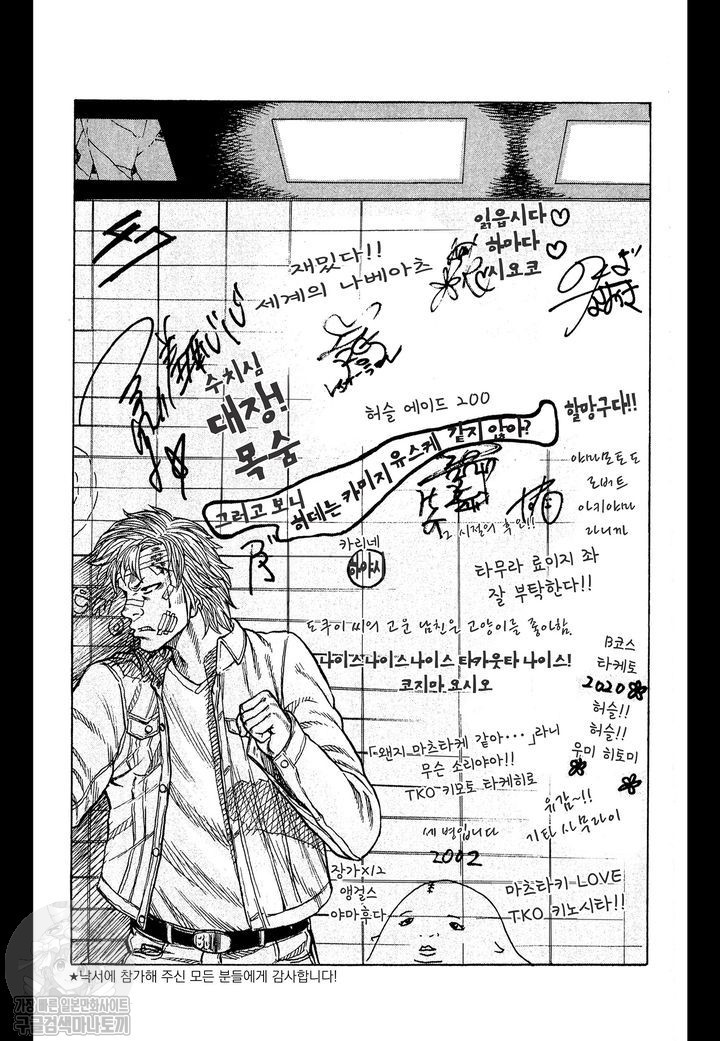 읽읍시다♡
하마다♡
시요코
재밌다!!
세계의 나베아츠
수치심
대쟁!
목숨
허슬 에이드 200
할망구다!!
그러고 보니
히데는 카미지 유스케 같지 않아?
야마모토
로버트
아키야마
그 시절의 축인!!
카리네
하야시
타무라 료이지 좌
잘 부탁한다!!
도쿠이 씨의 고운 남친은 고양이를 좋아함.
나이스나이스나이스 타카웃타 나이스!
코지마 요시오
B코스
타케토
2020
허슬!!
허슬!!
우미 히토미
「왠지 마츠타케 같아···」라니
무슨 소리야아!!
TKO 키모토 타케히로
유감~!!
기타 사무라이
세 별입니다
2002
장가×12
앵걸스
야마후다
마츠타키 LOVE
TKO 키노시타!!
★낙서에 참가해 주신 모든 분들에게 감사합니다!
가장 빠른 일본만화사이트
구글검색마나토끼